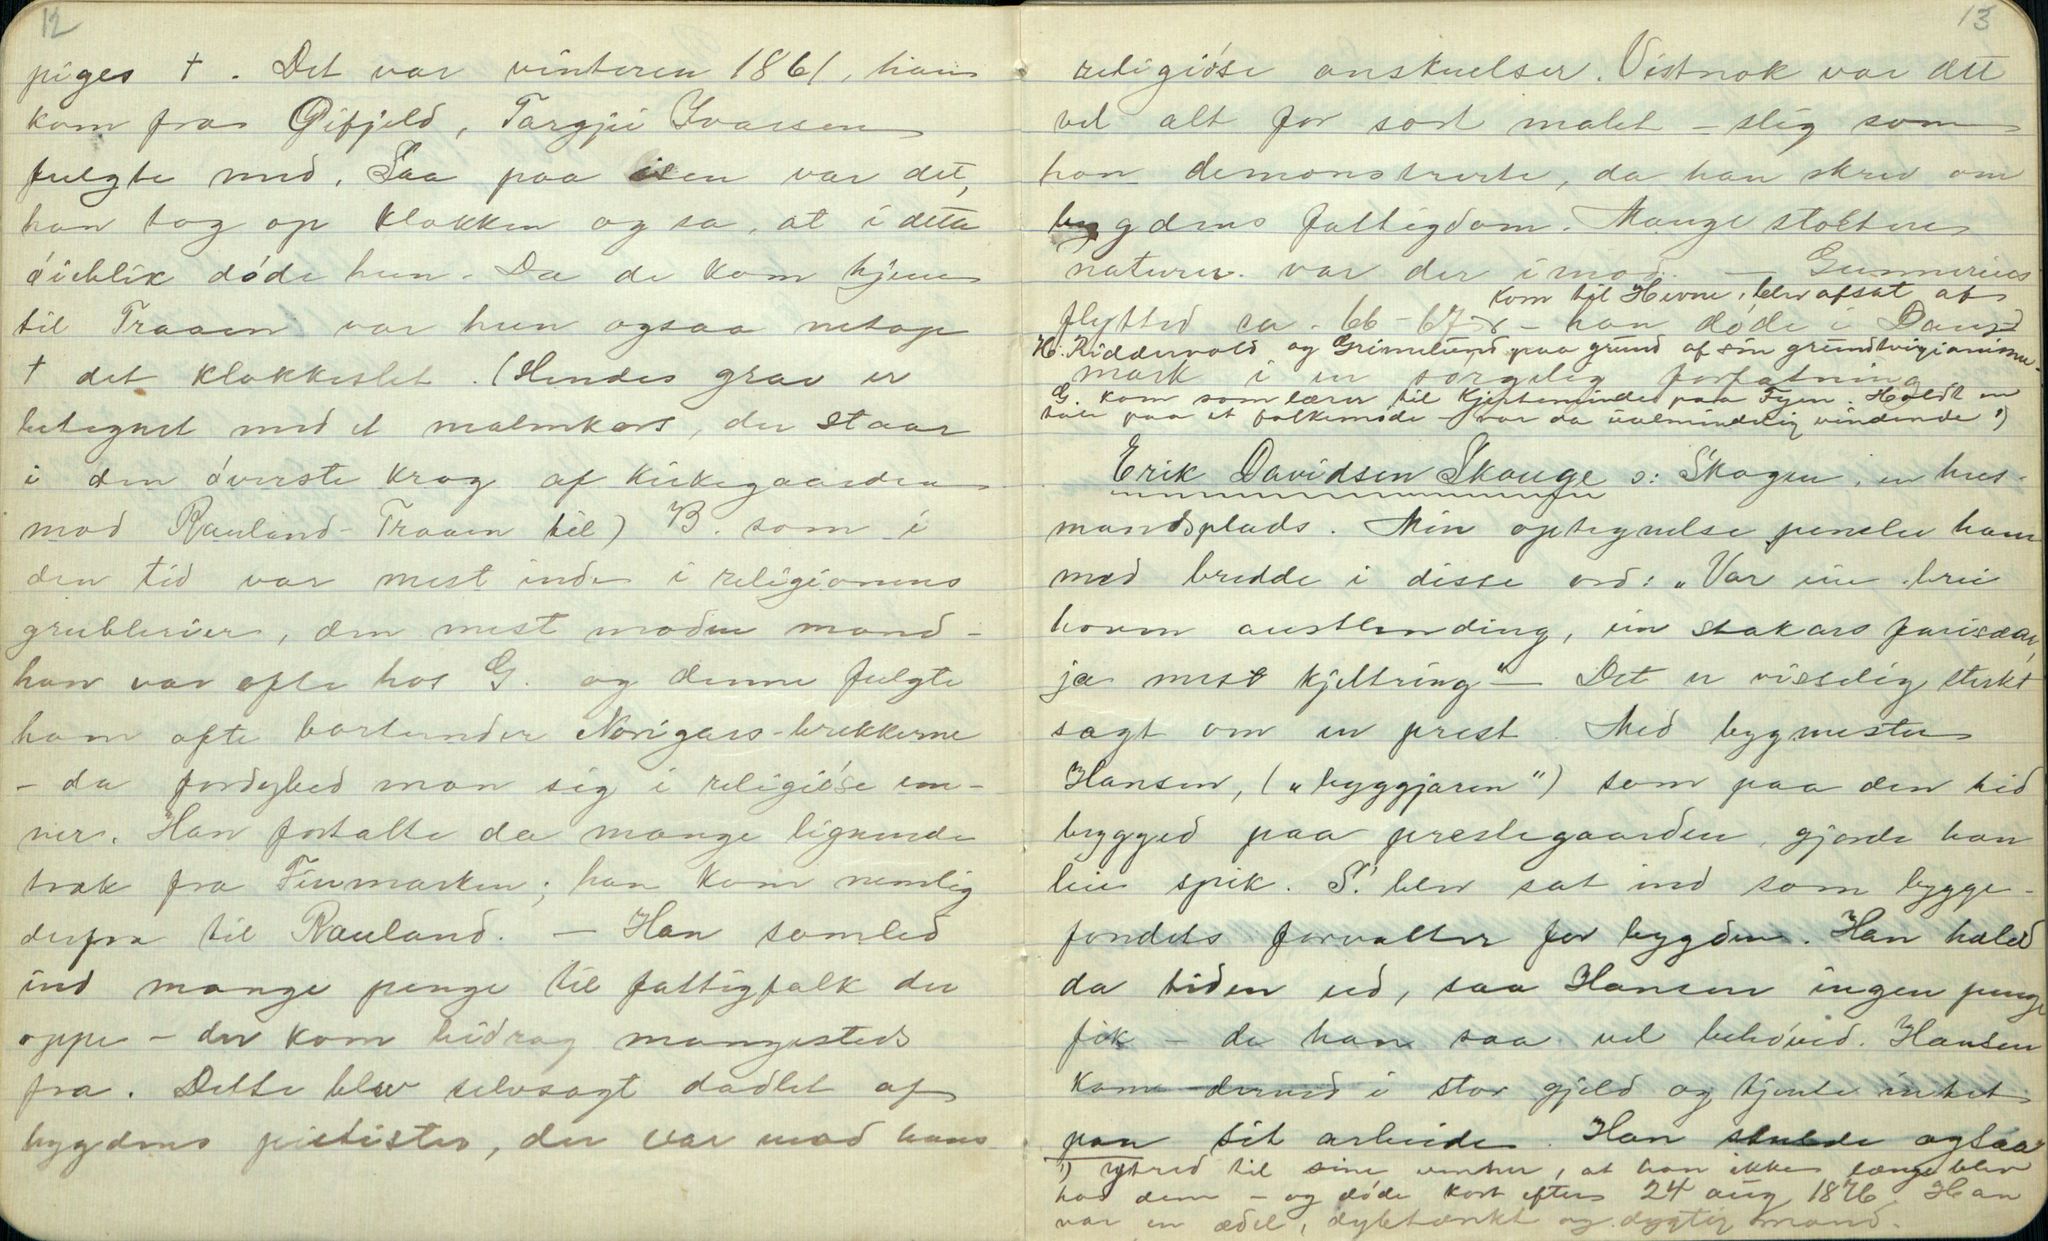 12
piges †. Det var vinteren 1861, han
kom fra Øifjeld, Targjei Ivarsen
fulgte med. Saa paa isen var det,
han tog op klokken og sa, at i dette
øieblik døde hun. Da de kom hjem
til Traaen var hun ogsaa netop
† det klokkeslet. (Hendes grav er
betegnet med et malmkors, der staar
i den øverste krog af kirkegaarden
mod Rauland-Traaen til) B. som i
den tid var mest inde i religionens
grublerier, den mest modne mand -
han var ofte hos G. og denne fulgte
ham ofte bortunder Norigars-brekkerne
- da fordybed man sig i religiøse em-
ner. Han fortalte da mange lignende
træk fra Finmarken; han kom nemlig
derfra til Rauland. - Han samled
ind mange penge til fattigfolk der
oppe - der kom bidrag mangesteds
fra. Dette blev selvsagt dadlet af
bygdens pietister, der var mod hans
13
religiøse anskuelser. Vistnok var det
vel alt for sort malet - slig som
han demonstrerte, da han skrev om
bygdens fattigdom. Mange stoltere
naturer var der imod. - Gunnerius
kom til Hevne, blev afsat af
flytted ca. 66-67 - han døde i Dan-
H. Riddervold og Grimelund paa grund af sin grundtvigianisme
mark i en sørgelig forfatning
G. kom som lærer til Kjerteminde paa Fyen. Holdt en
tale paa et folkemøde - var da ualmindelig vindende ¹)
Erik Davidsen Skauge ɔ: Skogen, en hus-
mandsplads. Min optegnelse pensler ham
med bredde i disse ord: „Var ein brei
hovm austlending, ein stakars farisæar,
ja mest kjeltring“ - Det er visselig sterkt
sagt om en prest. Med bygmester
Hansen, („byggjaren“) som paa den tid
bygged paa prestegaarden, gjorde han
lei spik. S. blev sat ind som bygge-
fondets forvalter for bygden. Han haled
da tiden ud, saa Hansen ingen penge
fik - de han saa vel behøved. Hansen
kom derved i stor gjeld og tjente intet
paa sit arbeide. Han skulde ogsaa
¹) ytred til sine venner, at han ikke længe blev
hos dem - og døde kort efter 24 aug 1876. Han
var en ædel, dybtænkt og dygtig mand.